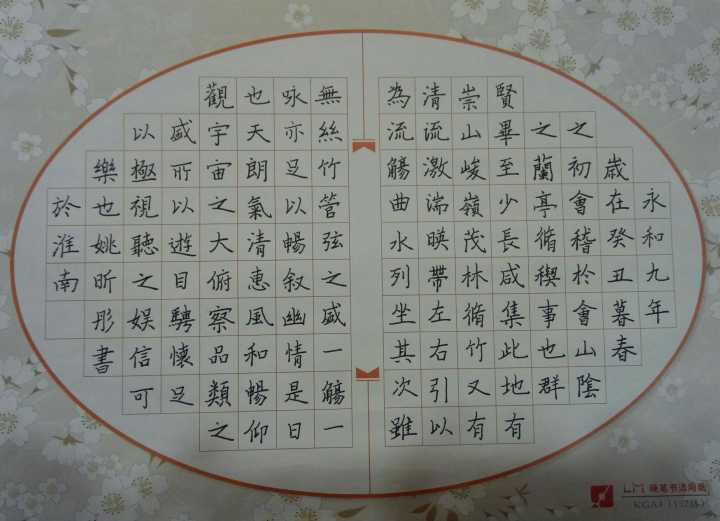 永和九年
歳在癸丑暮春
之初會稽於會山陰
之蘭亭脩禊事也群
賢畢至少長咸集此地有
崇山峻嶺茂林脩竹又有
清流激湍暎帶左右引以
為流觴曲水列坐其次雖
無絲竹管弦之盛一觴一
咏亦足以暢叙幽情是日
也天朗氣清惠風和暢仰
觀宇宙之大俯察品類之
盛所以遊目騁懷足
以極視聽之娛信可
樂也姚昕彤書
於淮南
硬笔书法用纸